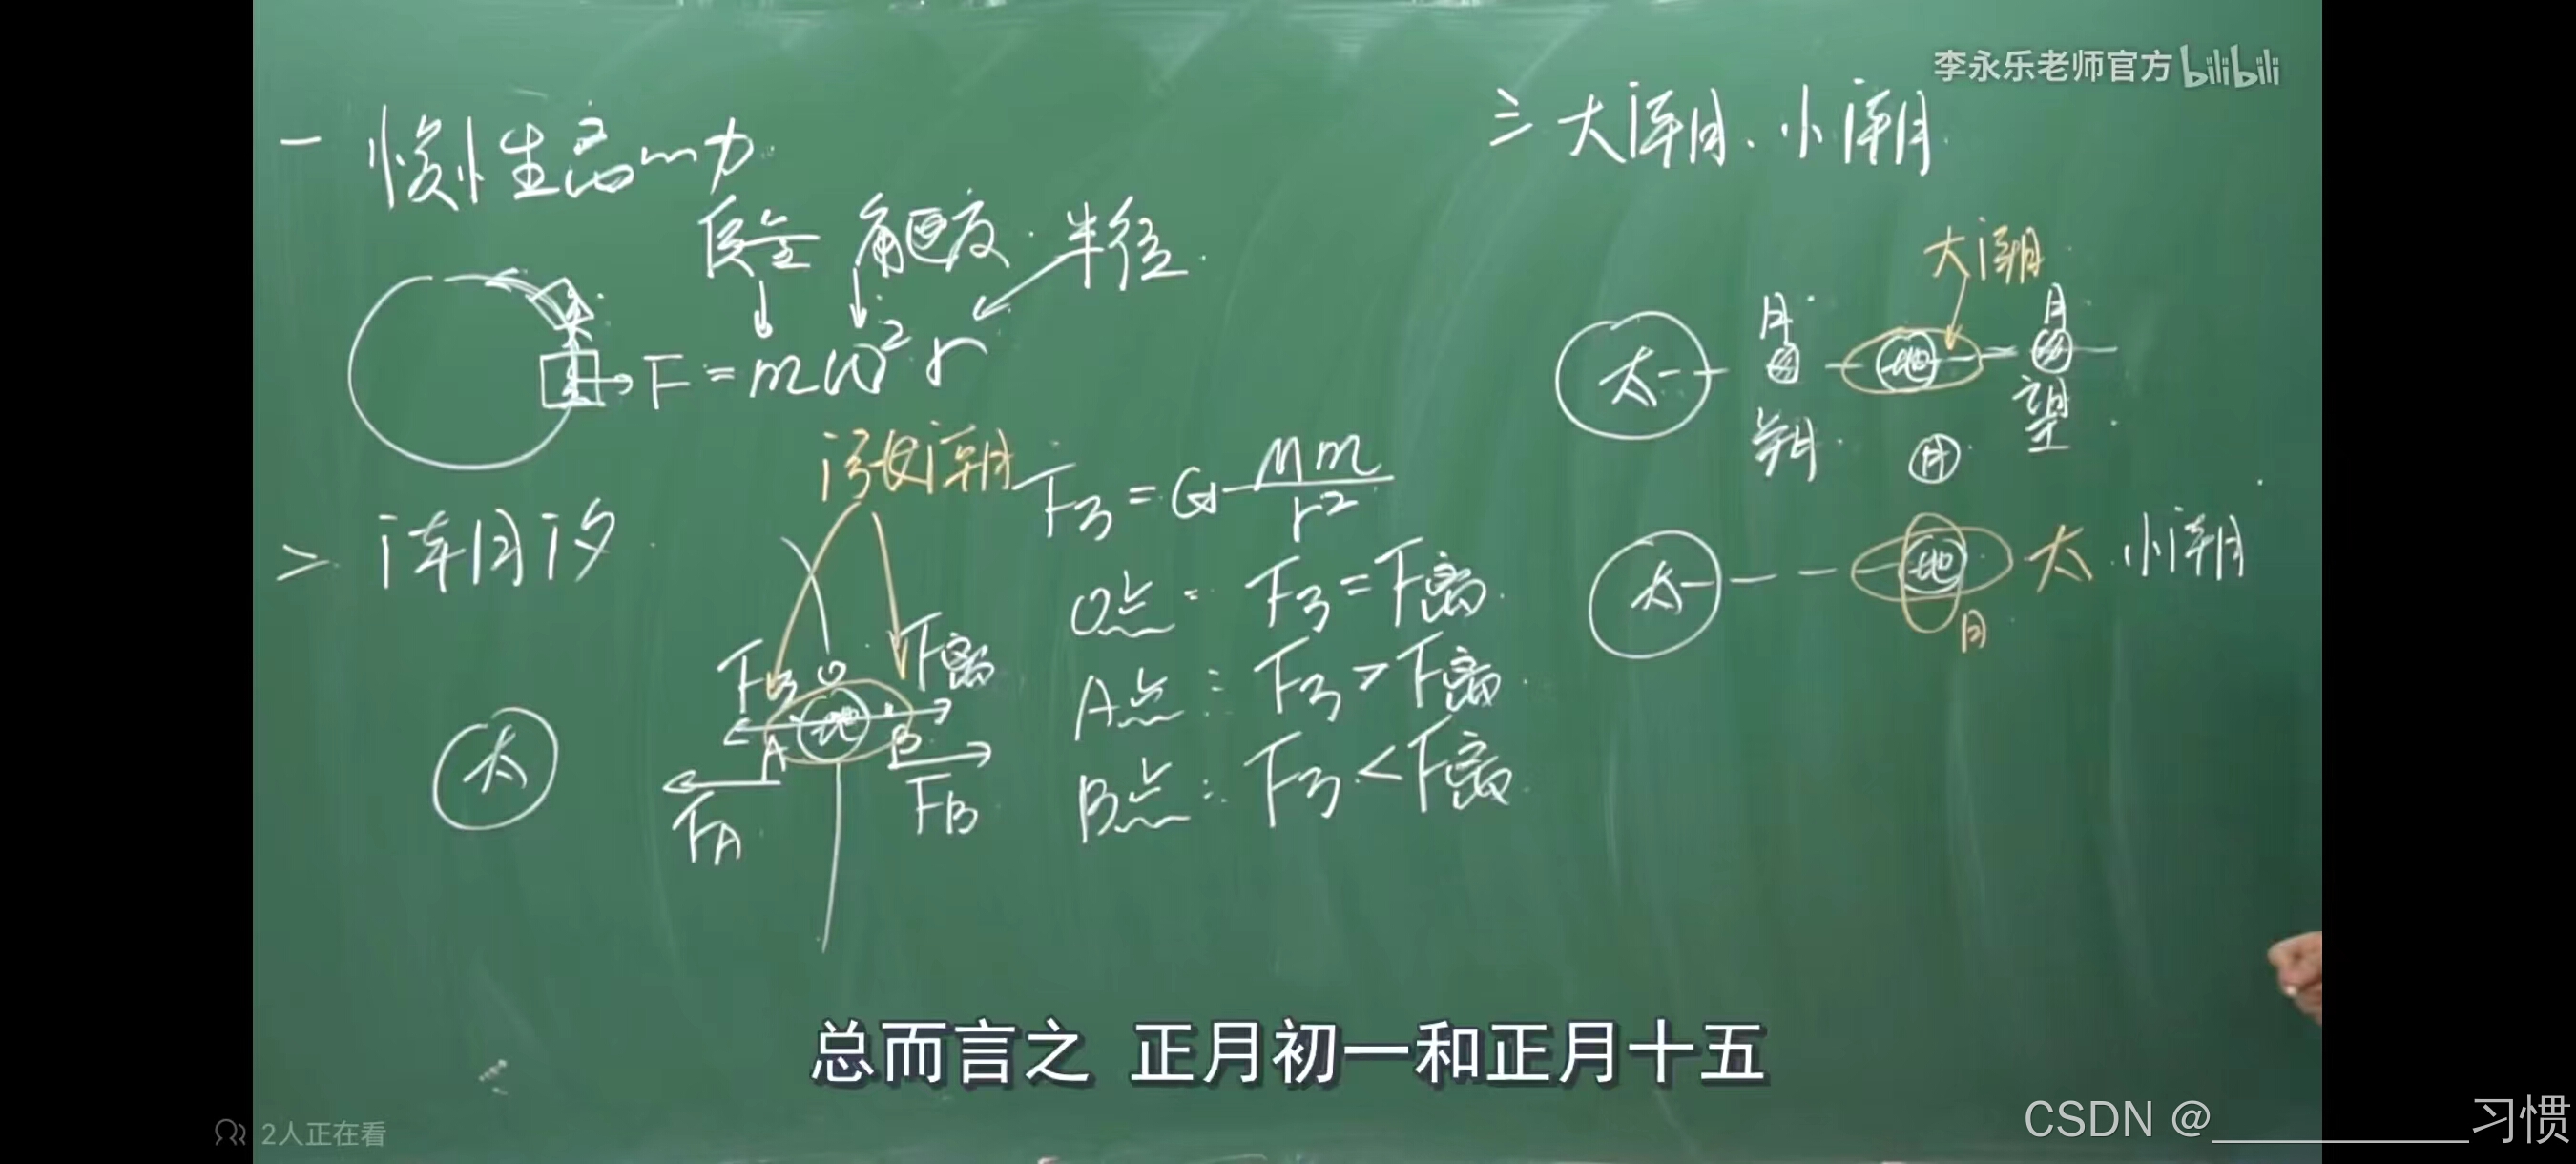 李永乐老师官方 bilibili
一 惯性离心力
质量 角速度 半径
F = mω²r
二 潮汐
太
涨潮
F引 O F离
地
A B
FA FB
F引 = G Mm/r²
O点: F引 = F离
A点: F引 > F离
B点: F引 < F离
三 大潮、小潮
大潮
太 月 地 月
朔 望
月
太 地 太 小潮
月
总而言之 正月初一和正月十五
2人正在看
CSDN @__________习惯